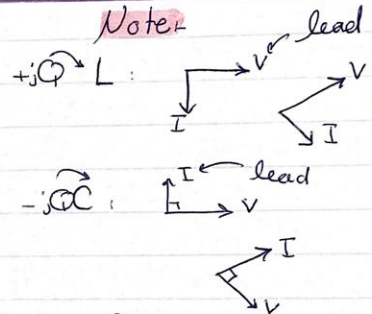 Note:-
+jQ L : V lead
I
V
I
-jQC : I lead
V
I
V